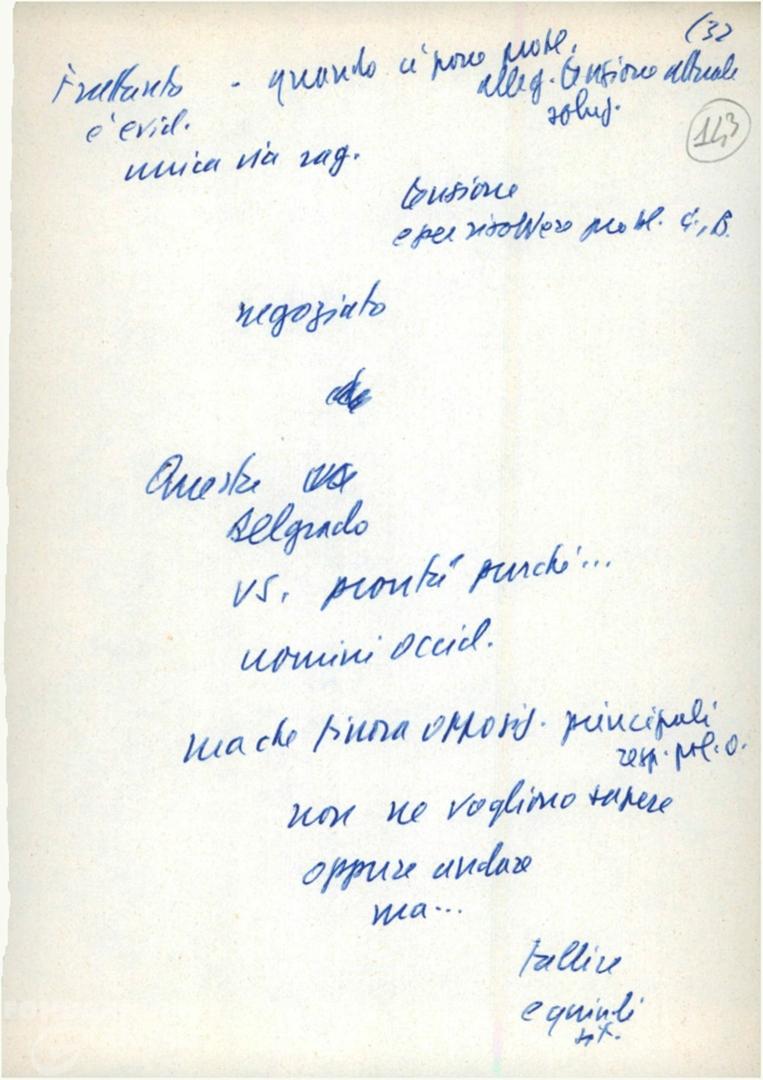 (32
143
Frattanto - quando ci sono probl.
è evid. alleg. tensione attuale
soluz.
unica via rag.
tensione
e per risolvere probl. G., B.
negoziato
Queste
Belgrado
vs. pronta purché...
uomini occid.
ma che finora opposiz. principali
resp. pol. o.
non ne vogliono sapere
oppure andare
ma...
fallire
e quindi